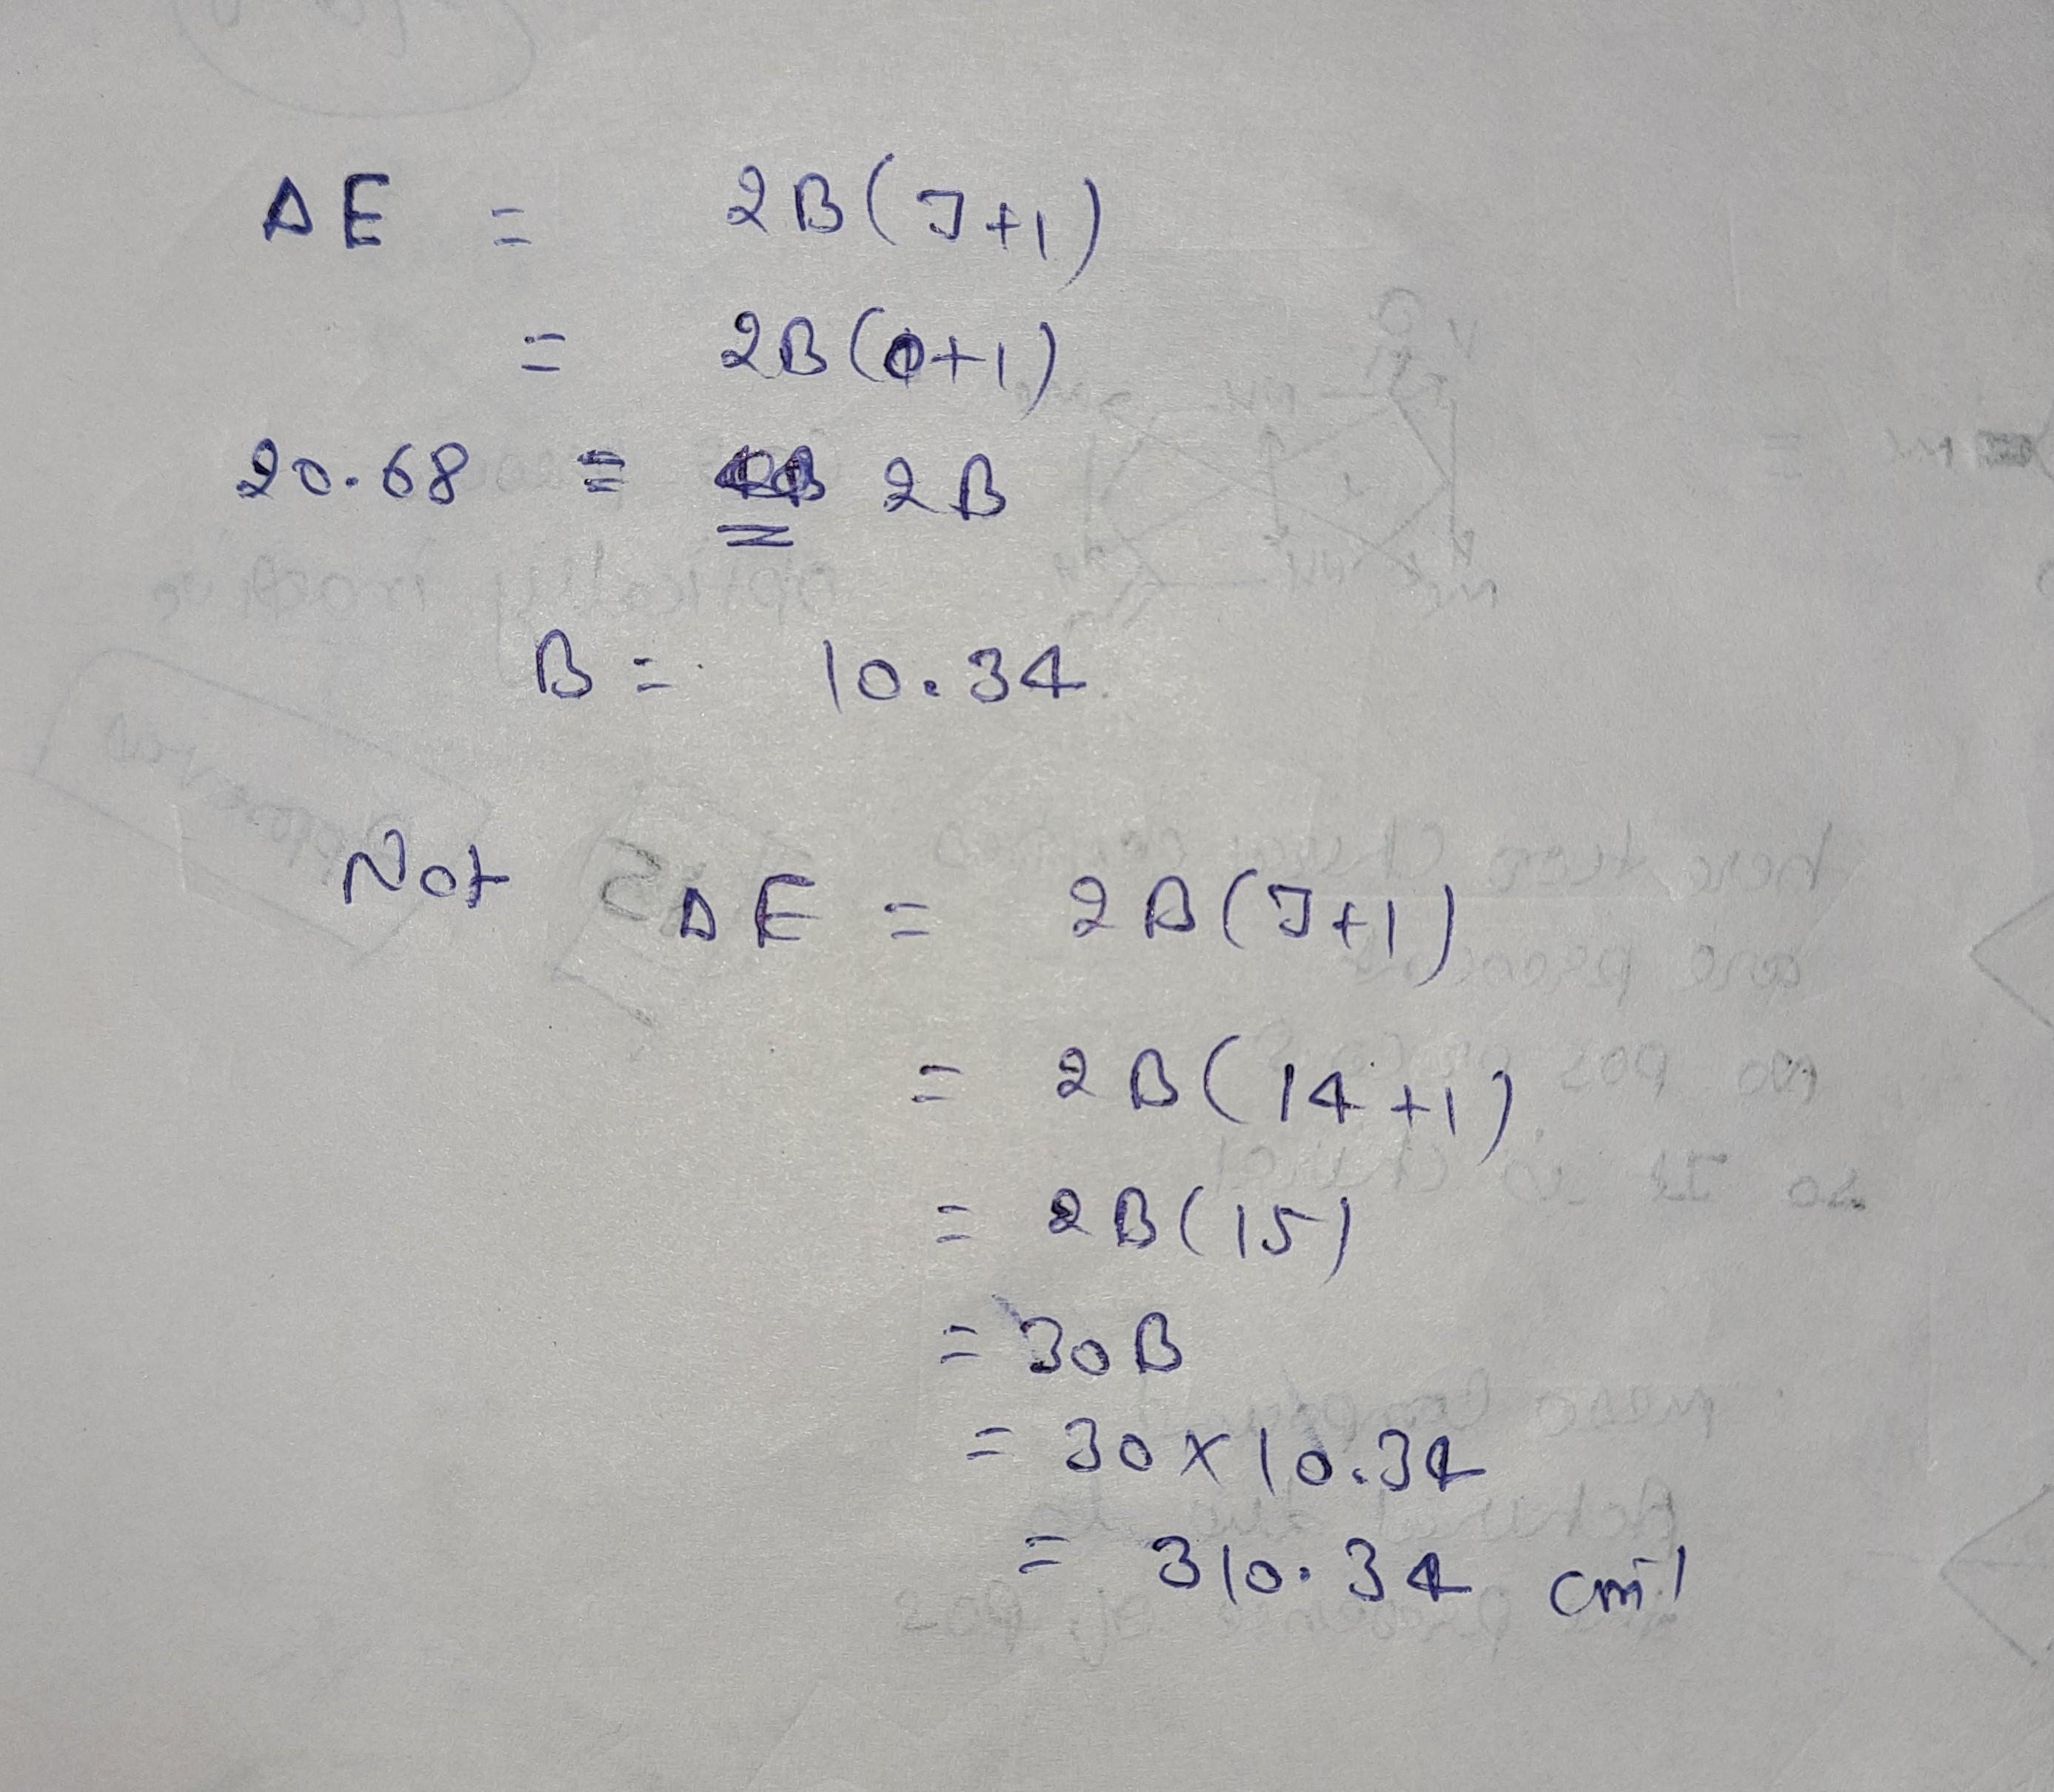 ΔE = 2B(J+1)
= 2B(0+1)
20.68 = 2B
B = 10.34
Not ΔE = 2B(J+1)
= 2B(14+1)
= 2B(15)
= 30B
= 30×10.34
= 310.34 cm⁻¹